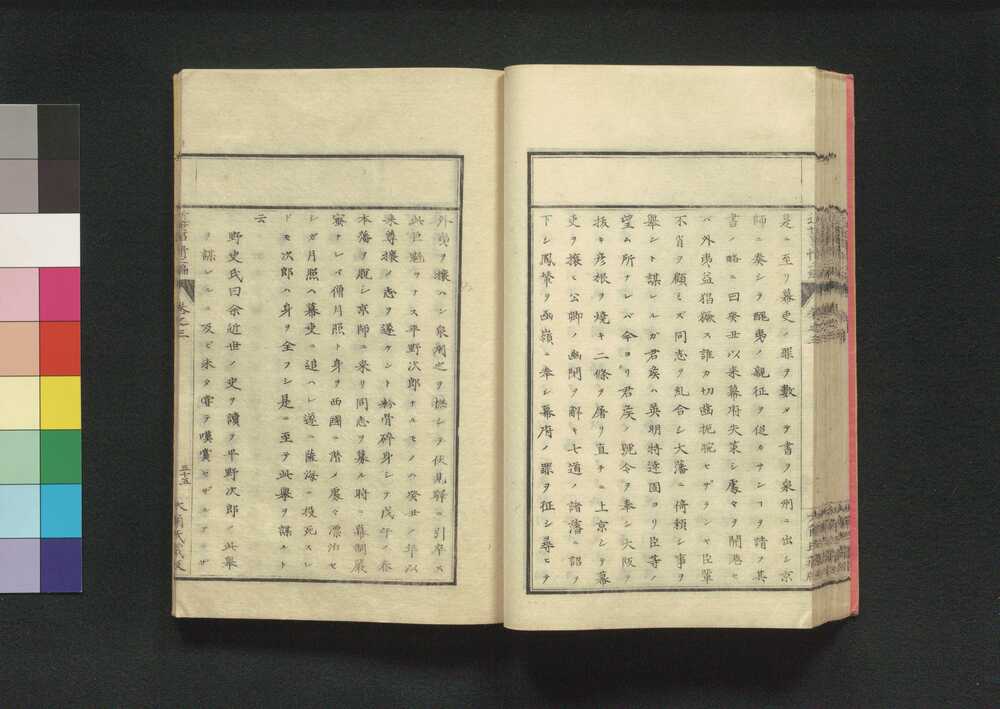 是ニ至リ幕吏ノ罪ヲ數メテ書ヲ泉州ニ出シ京
師ニ奏シテ醜夷ノ親征ヲ促カサンコヲ請フ其
書ノ略ニ曰癸丑以来幕府失策シ處々ヲ開港セ
バ外夷益猖獗ス誰カ切齒扼腕セザランヤ臣輩
不肖ヲ顧ミズ同志ヲ糺合シ大藩ニ倚頼シ事ヲ
舉ント謀レルガ君矦ハ英明特達固ヨリ臣等ノ
望ム所ナレバ今ヨリ君矦ノ號令ヲ奉シ大阪ヲ
抜キ彦根ヲ焼キ二條ヲ屠リ直チニ上京シテ幕
吏ヲ攘ヒ公卿ノ幽閉ヲ解キ七道ノ諸藩ニ詔ヲ
下シ鳳輦ヲ函嶺ニ奉シ幕府ノ罪ヲ征シ尋テヲ
外夷ヲ攘ハシ泉州之ヲ撫シテ伏見驛ニ引卒ス
此巨魁ヲナス平野次郎ナルモノハ癸丑ノ年以
来尊攘ノ志ヲ遂ケント粉骨碎身シテ戊午ノ春
本藩ヲ脱シ京師ニ来リ同志ヲ募ル時ニ幕制嚴
密ナレバ僧月照ト身ヲ西國ニ潜メ處々漂泊セ
シガ月照ハ幕吏ニ追ハレ遂ニ薩海ニ投死スレ
ドモ次郎ハ身ヲ全フシ是ニ至テ此舉ヲ謀ルト
云
野史氏曰余近世ノ史ヲ讀テ平野次郎ノ此舉
ヲ謀レルニ及ビ未タ嘗テ嘆賞セザルアラザ
卷之三
三十五